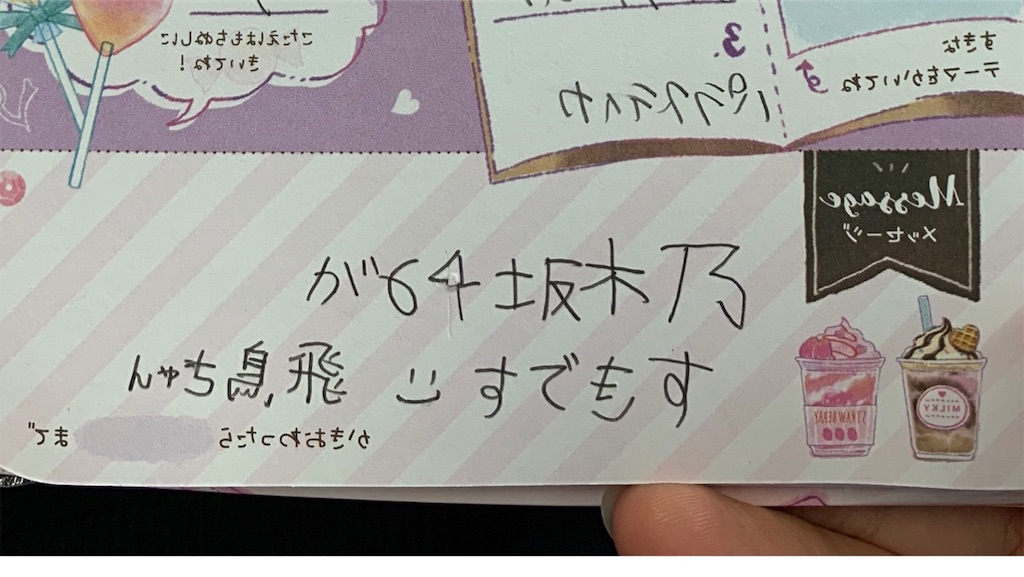 こたえはもちぬしに
きいてね!
3.
すきな
テーマをかいてね
Message
メッセージ
乃木坂46が
すきです :) 飛鳥ちゃん
STRAWBERRY
MILKY
かきおわったら
まで